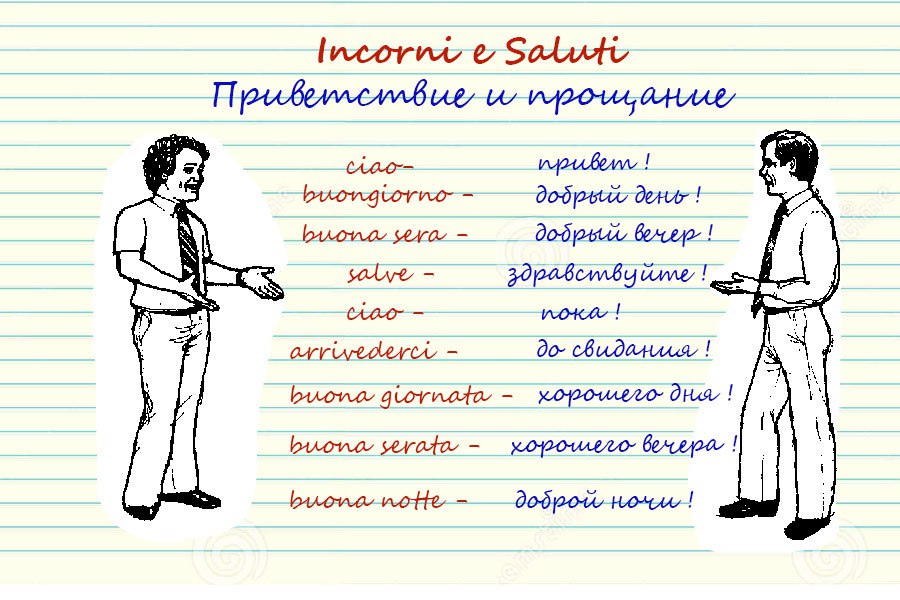 Incorni e Saluti
Приветствие и прощание
ciao- привет !
buongiorno - добрый день !
buona sera - добрый вечер !
salve - здравствуйте !
ciao - пока !
arrivederci - до свидания !
buona giornata - хорошего дня !
buona serata - хорошего вечера !
buona notte - доброй ночи !